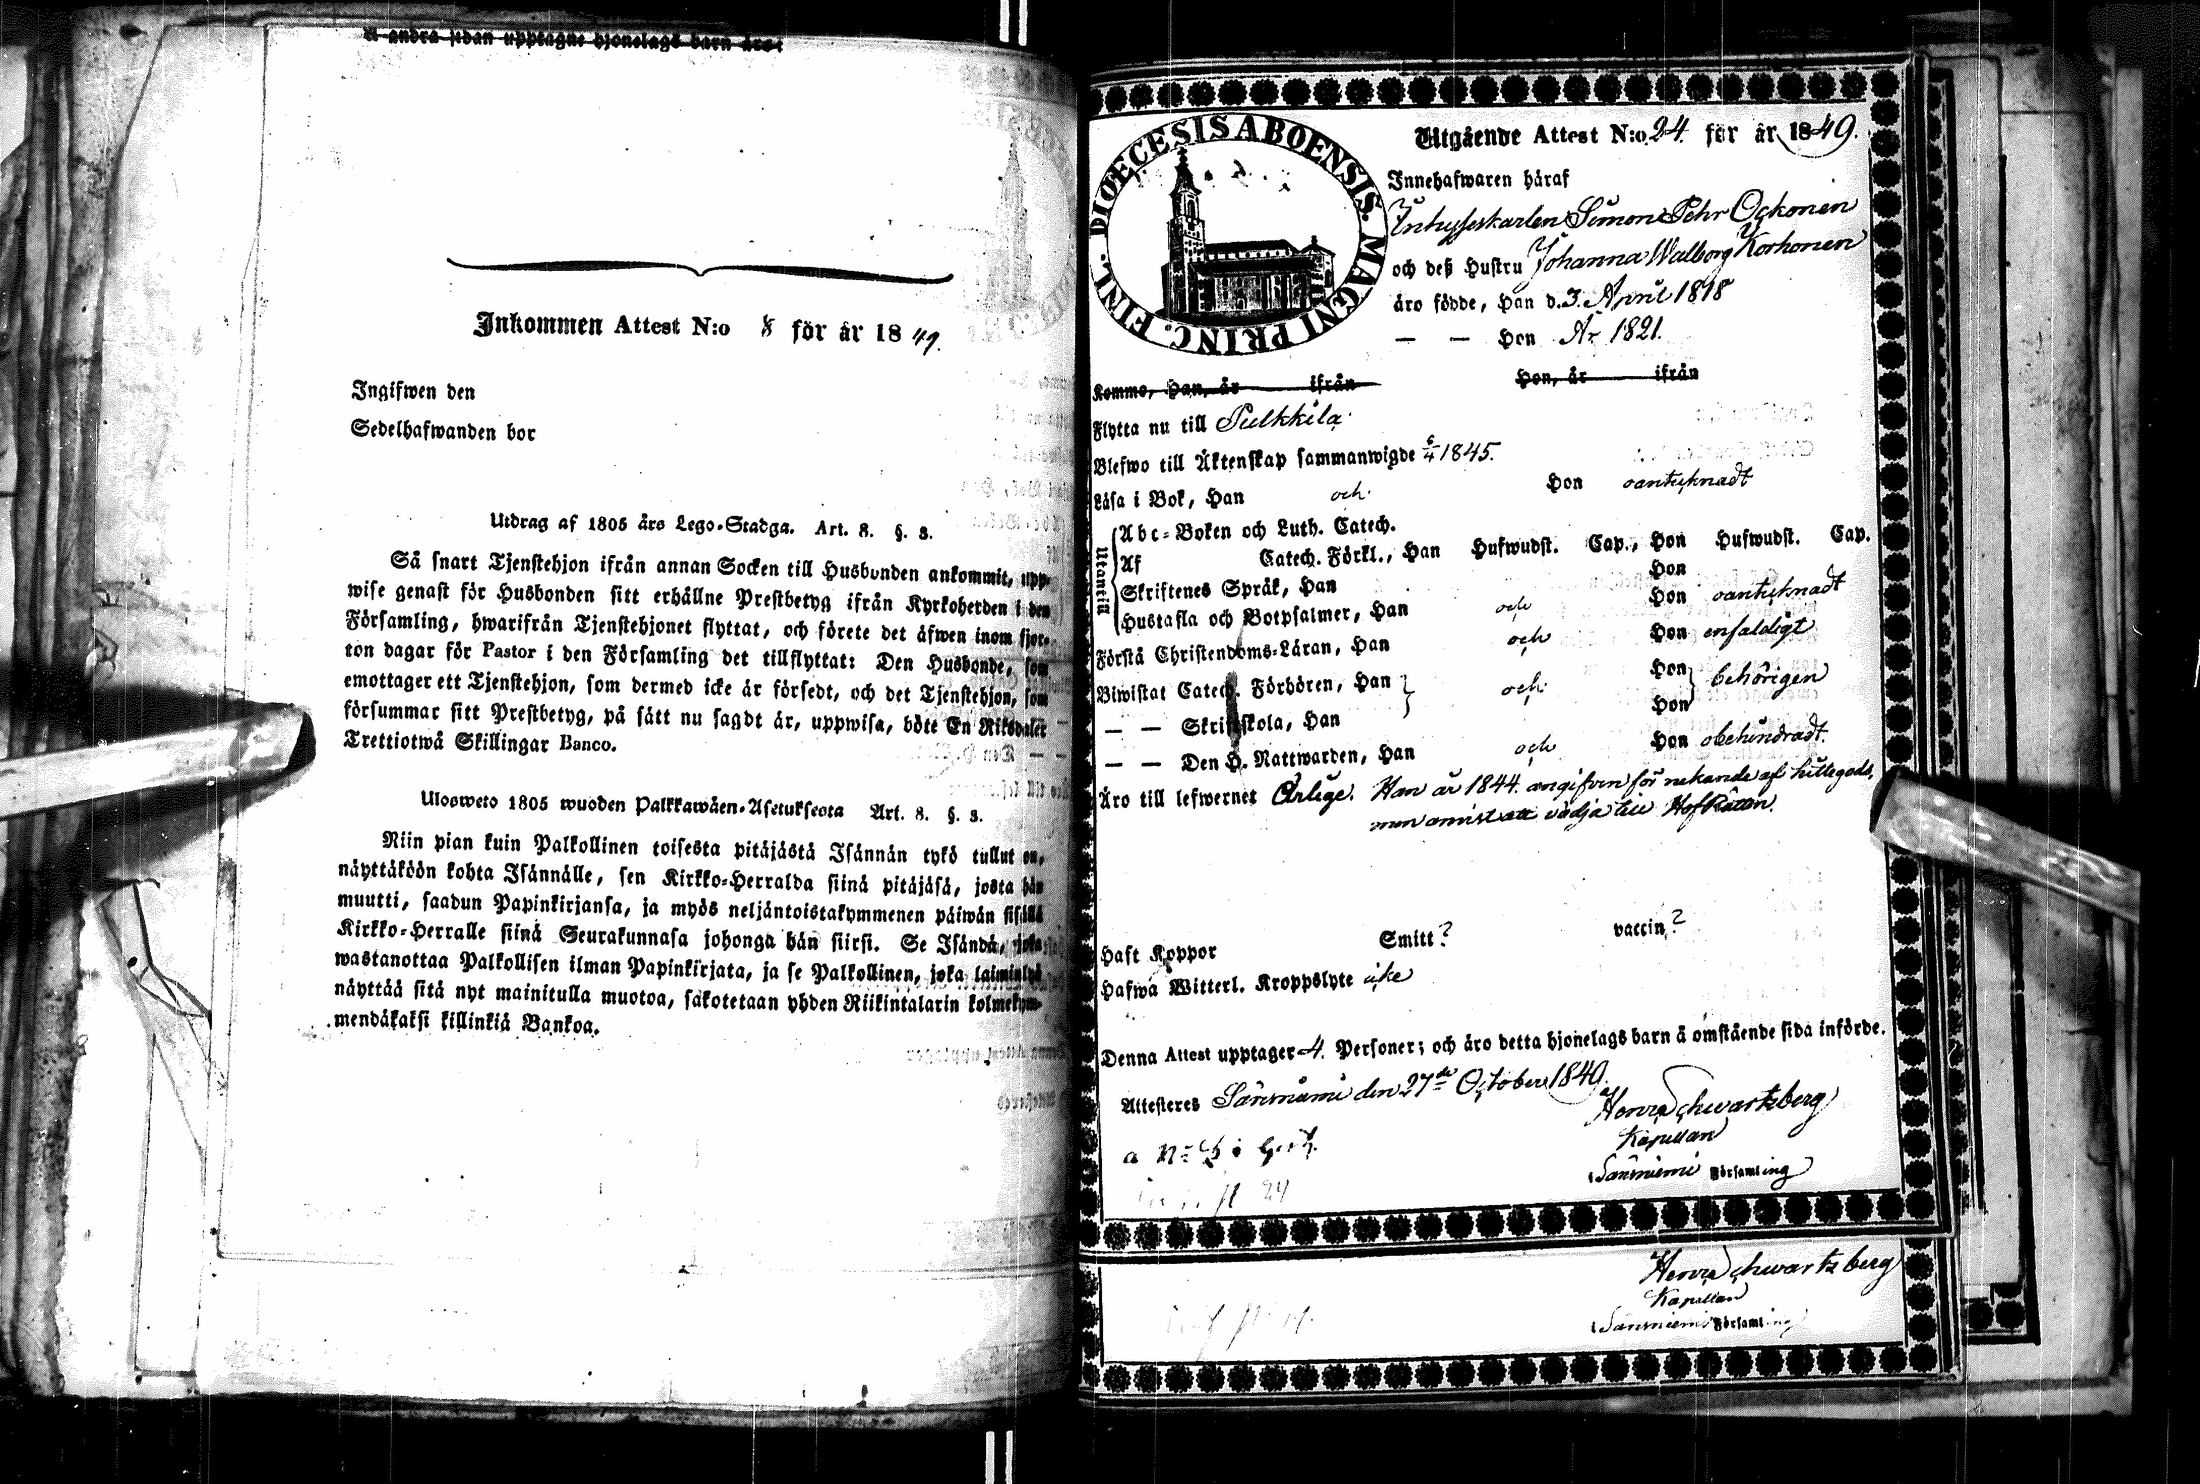 Å andra sidan upptagne hjonelags barn äro:
Inkommen Attest N:o 8 för år 1849.
Ingifwen den
Sedelhafwanden bor
Utdrag af 1805 års Lego-Stadga. Art. 8. §. 3.
Så snart Tjenstehjon ifrån annan Socken till Husbonden ankommit, upp-
wise genast för Husbonden sitt erhållne Prestbetyg ifrån Kyrkoherden i den
Församling, hwarifrån Tjenstehjonet flyttat, och förete det äfwen inom fjor-
ton dagar för Pastor i den Församling det tillflyttat: Den Husbonde, som
emottager ett Tjenstehjon, som dermed icke är försedt, och det Tjenstehjon, som
försummar sitt Prestbetyg, på sätt nu sagdt är, uppwisa, böte En Riksdaler
Trettiotwå Skillingar Banco.
Ulosweto 1805 wuoden Palkkawäen-Asetuksesta Art. 8. §. 3.
Niin pian kuin Palkollinen toisesta pitäjästä Isännän tykö tullut on,
näyttäköön kohta Isännälle, sen Kirkko-Herralda siinä pitäjäsä, josta hän
muutti, saadun Papinkirjansa, ja myös neljäntoistakymmenen päiwän sisällä
Kirkko-Herralle siinä Seurakunnasa johonga hän siirsi. Se Isändä, joka
wastanottaa Palkollisen ilman Papinkirjata, ja se Palkollinen, joka laiminlyö
näyttää sitä nyt mainitulla muotoa, sakotetaan yhden Riikintalarin kolmekym-
mendäkaksi killinkiä Bankoa.
DIOECESIS ABOENSIS. MAGNI PRINC. FINL.
Utgående Attest N:o 24. för år 1849.
Innehafwaren häraf
Inhyseskarlen Simon Pehr Ockonen
och deß Hustru Johanna Walborg Korhonen
äro födde, Han d. 3. April 1818
— — Hon År 1821.
Komme, Han, år ifrån Hon, år ifrån
Flytta nu till Pulkkila
Blefwo till Äktenskap sammanwigde 6/4 1845.
Läsa i Bok, Han och Hon oantecknadt
Utantill
Abc-Boken och Luth. Catech.
Af Catech. Förkl., Han Hufwudst. Cap., Hon Hufwudst. Cap.
Skriftenes Språk, Han Hon
Hustafla och Botpsalmer, Han och Hon oantecknadt
Förstå Christendoms-Läran, Han och Hon enfaldigt
Biwistat Catech. Förhören, Han och Hon behörigen
— — Skriftskola, Han Hon
— — Den H. Nattwarden, Han och Hon obehindradt.
Äro till lefwernet Ärlige. Han är 1844. angifven för nekande af hittegods,
men vädja till HofRätten.
Haft Koppor Smitt? vaccin?
Hafwa Witterl. Kroppslyte icke
Denna Attest upptager 4. Personer; och äro detta hjonelags barn å omstående sida införde.
Attesteres Säresniemi den 27de October 1849.
Henr. Schwartzberg
Kapellan
Säresniemi Församling
Henr. Schwartzberg
Kapellan
Säresniemi Församling